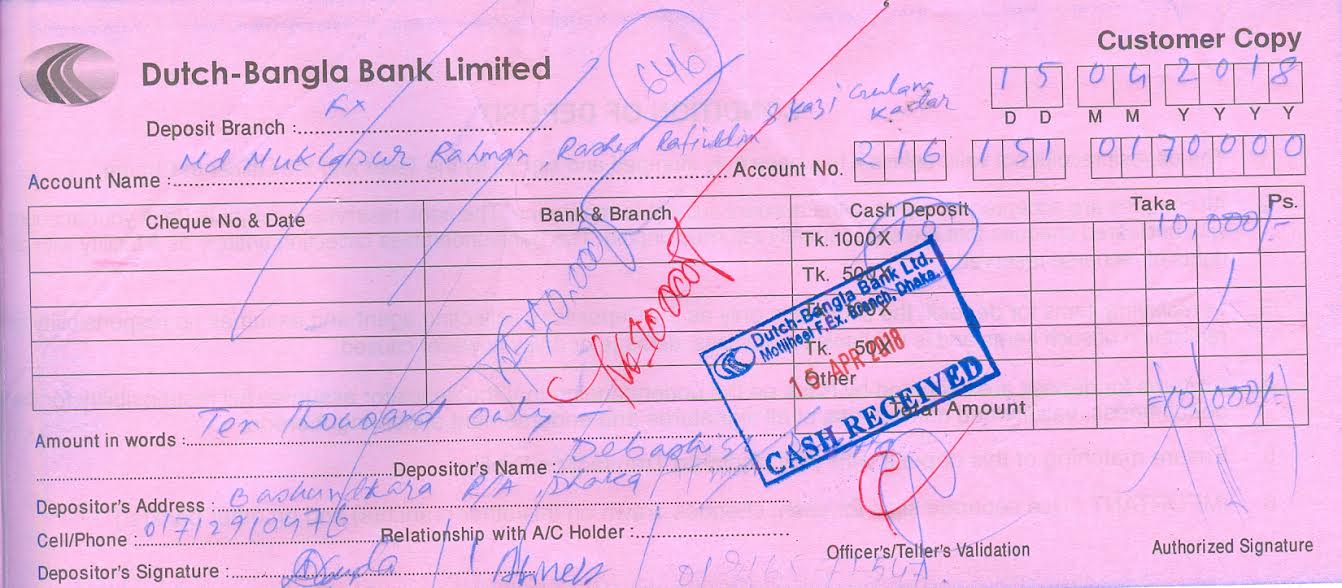 Customer Copy
Dutch-Bangla Bank Limited
646
15 04 2018
D D M M Y Y Y Y
Deposit Branch : Ex
Account Name : Md Muklasur Rahman, Rashed Rafiuddin & Kazi Golam Kadar
Account No. 216 151 0170000
Cheque No & Date Bank & Branch Cash Deposit Taka Ps.
Tk. 1000X 10 10,000/-
Tk. 500X
Tk. 50X
Other
Total Amount =10,000/-
Tk 10,000/-
Tk 10000/-
Dutch-Bangla Bank Ltd.
Motijheel F.Ex. Branch, Dhaka.
15 APR 2018
CASH RECEIVED
Amount in words : Ten Thousand only -
Depositor's Name :
Depositor's Address : Bashundhara R/A, Dhaka
Cell/Phone : 01712910476 Relationship with A/C Holder :
Depositor's Signature :
Officer's/Teller's Validation
Authorized Signature